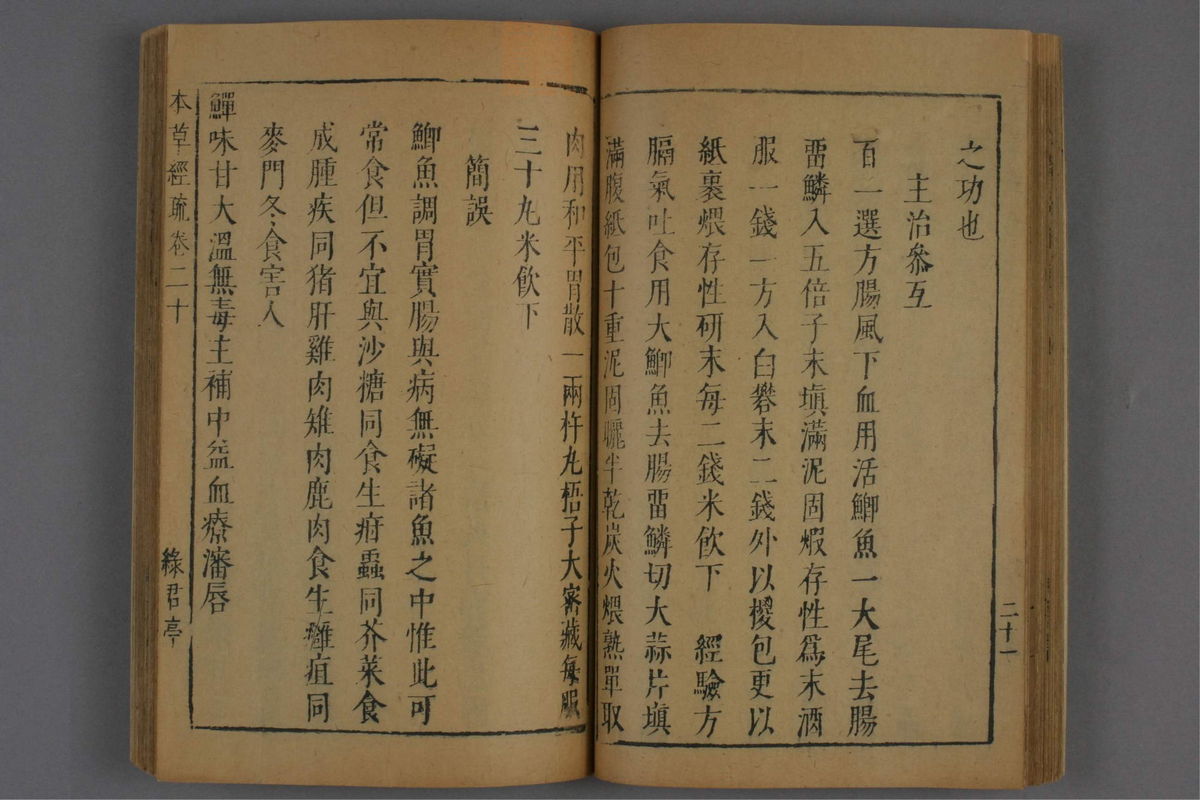 之功也
主治參互
百一選方腸風下血用活鯽魚一大尾去腸
畱鱗入五倍子末塡滿泥固煆存性爲末酒
服一錢一方入白礬末二錢外以椶包更以
紙裹煨存性硏末每二錢米飮下　經驗方
膈氣吐食用大鯽魚去腸畱鱗切大蒜片塡
滿腹紙包十重泥固曬半乾炭火煨熟單取
二十一
肉用和平胃散一兩杵丸梧子大密藏每服
三十丸米飮下
簡誤
鯽魚調胃實腸與病無礙諸魚之中惟此可
常食但不宜與沙糖同食生疳蟲同芥菜食
成腫疾同猪肝雞肉雉肉鹿肉食生癰疽同
麥門冬食害人
鱓味甘大溫無毒主補中益血療瀋唇
本草經疏卷二十
綠君亭